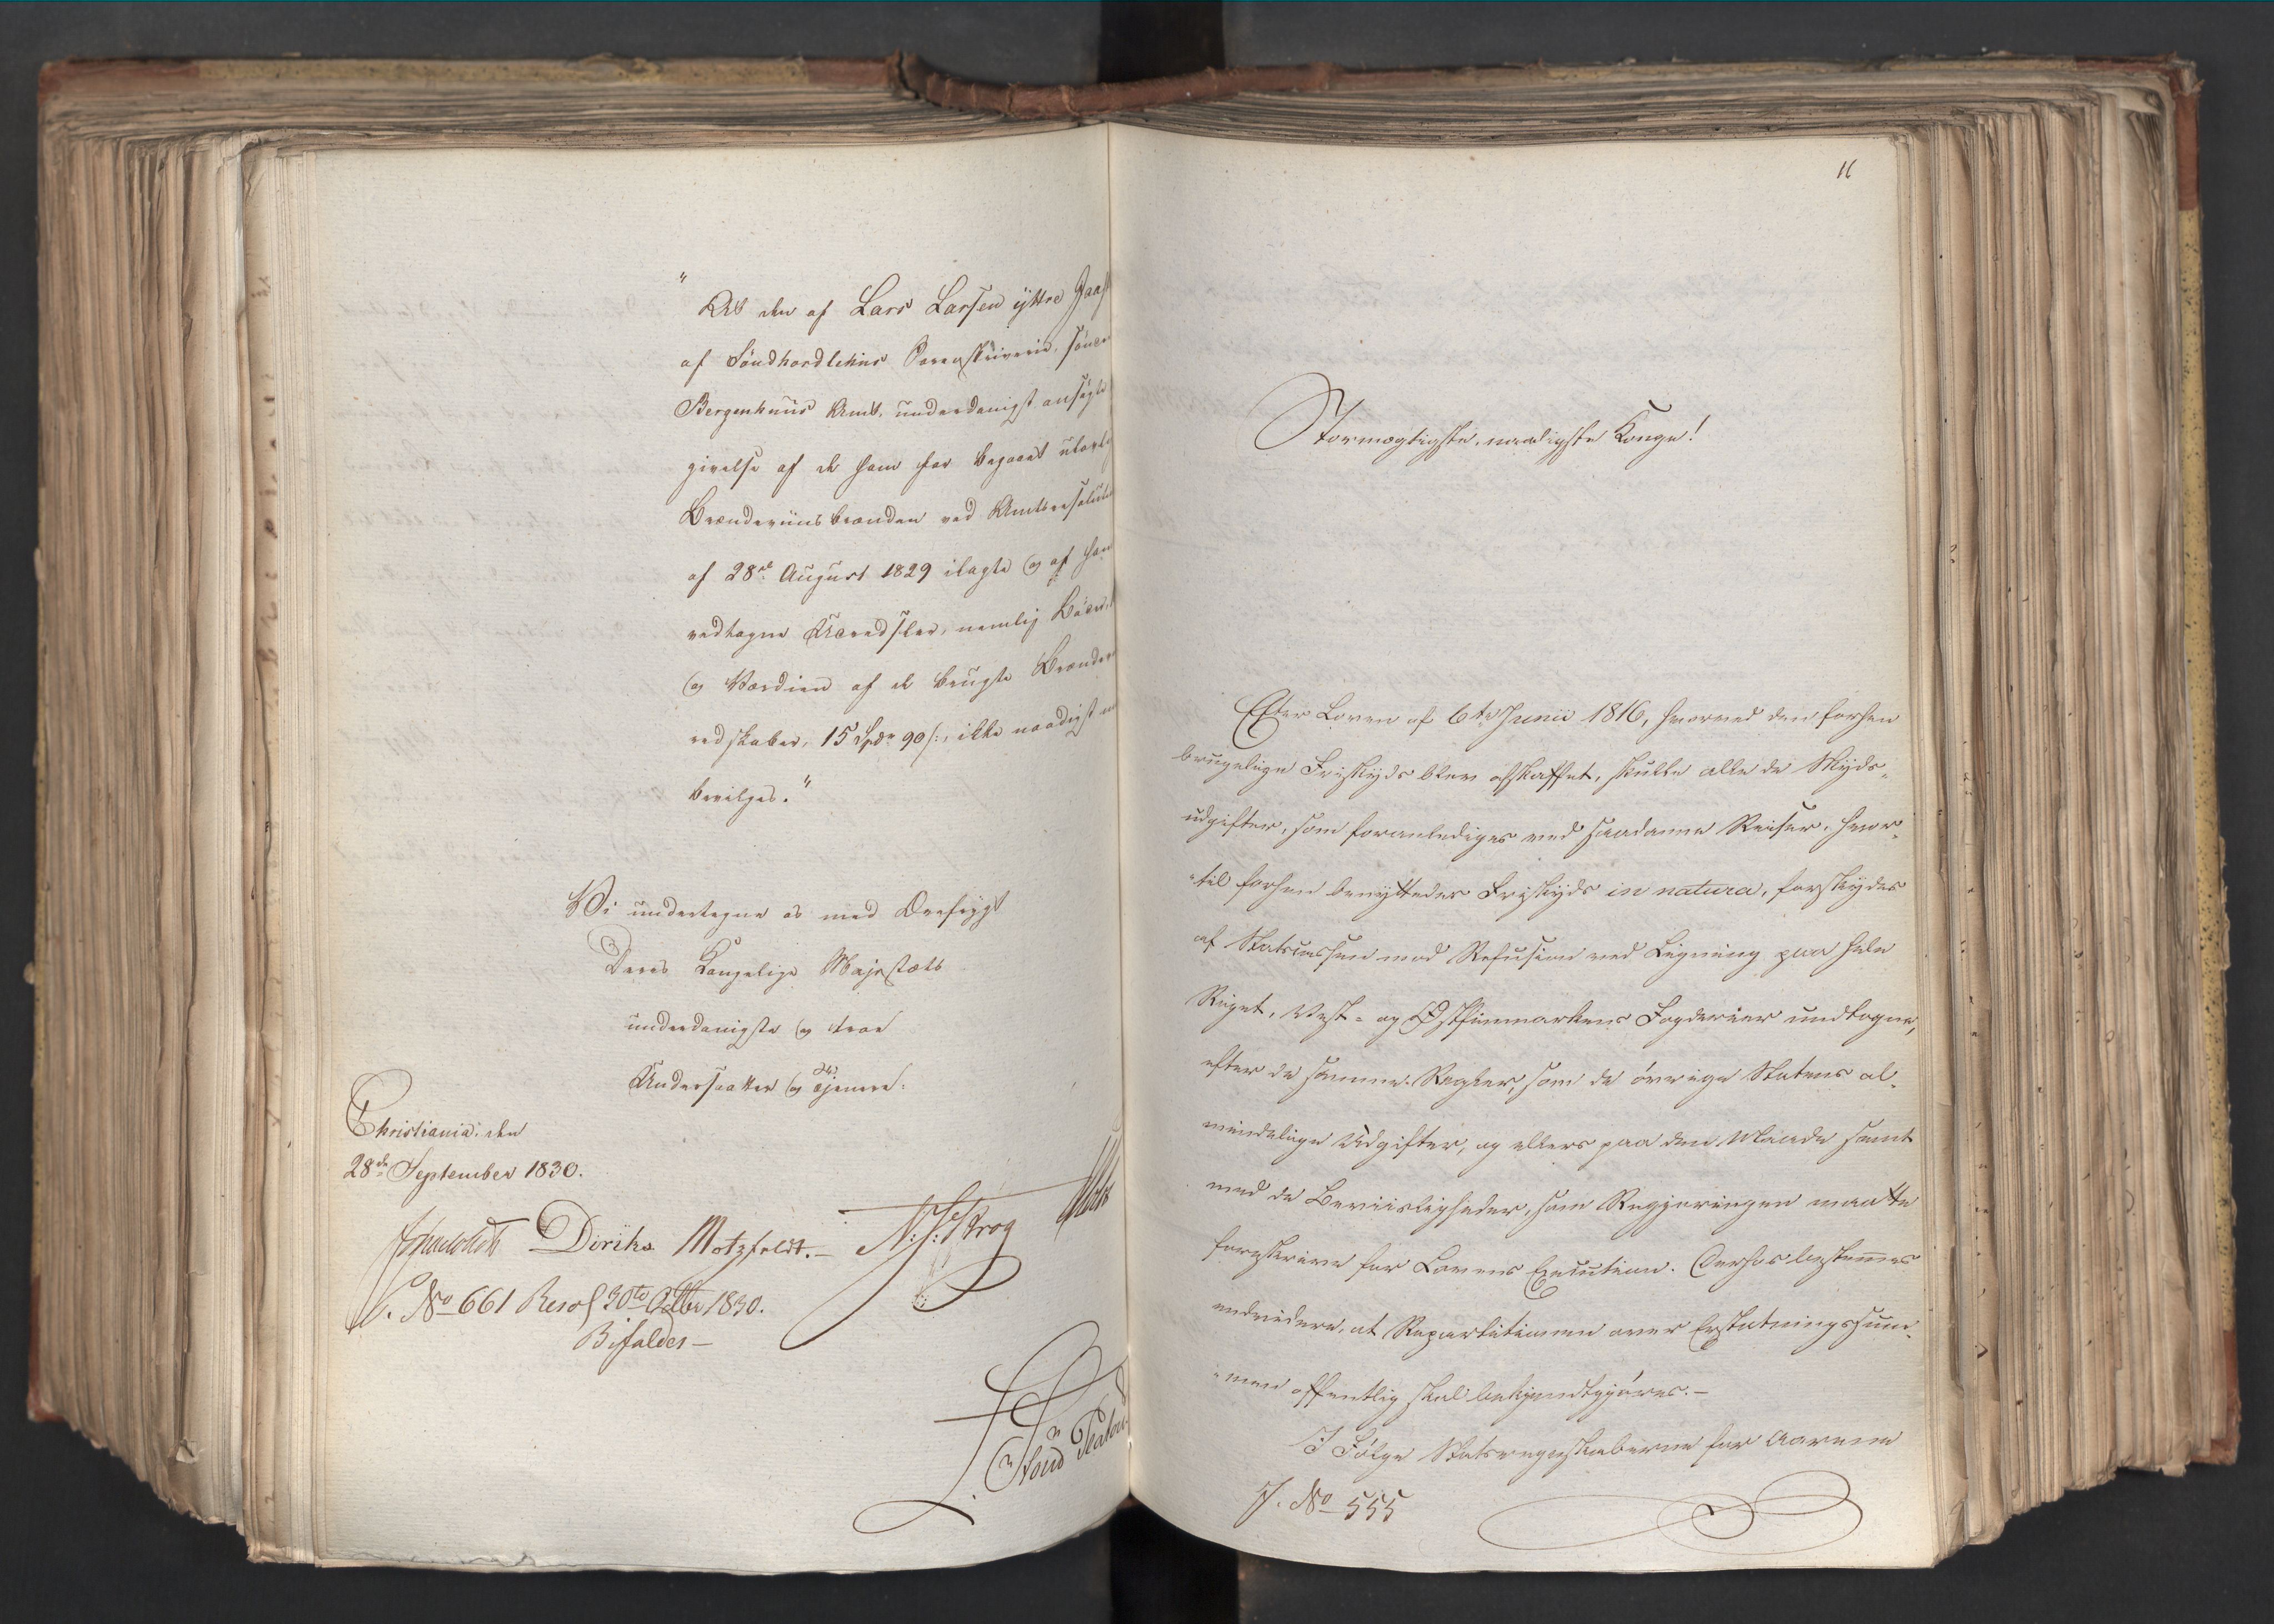 "At den af Lars Larsen yttre
af Söndhordlehns Sorenskriverie, söndre
Bergenhuus Amt, underdanigst ansøgte
givelse af de ham for begaaet ulovlig
Brændeviinsbrænden ved Amtsresolution
af 28de August 1829 ilagte og af ham
vedtagne Straffe, nemlig Bøder
og Værdien af de brugte Brænde
redskaber, 15 Spdr 90 s:, ikke naadigst
bevilges."
Vi undertegne os med Ærefrygt
Deres Kongelige Majestæts
underdanigste og troe
Undersaatter og Tjenere:
Christiania, den
28de September 1830.
Diriks Motzfeldt. N: J: Krog Holst
C. No 661 Resol 30te Octbr 1830.
Bifaldes
11
Stormægtigste, naadigste Konge!
Efter Loven af 6te Junii 1816, hvorved den forhen
brugelige Friskyds blev afskaffet, skulle alle de Skyds-
udgifter, som foranlediges ved saadanne Reiser, hvor-
-til forhen benyttedes Friskyds in natura, forskydes
af Statscassen mod Refusion ved Ligning paa hele
Riget, Vest- og Østfinmarkens Fogderier undtagne,
efter de samme Regler, som de övrige Statens al-
mindelige Udgifter, og ellers paa den Maade samt
med de Beviisligheder, som Regjeringen maatte
foreskrive for Lovens Execution. Derhos bestemmes
endvidere, at Repartitionen over Erstatningssum-
-men offentlig skal bekjendtgjöres.-
I Fölge Statsregnskaberne for Aarene
J. No 555